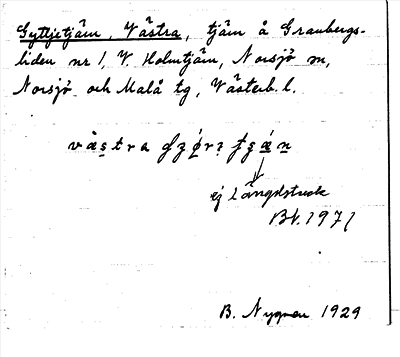 Gyttjetjärn, Västra, tjärn å Granbergs-
liden nr 1, V. Holmtjärn, Norsjö sn,
Norsjö och Malå tg, Västerb. l.
västra
ej längdstreck
Bt. 1971
B. Nygren 1929